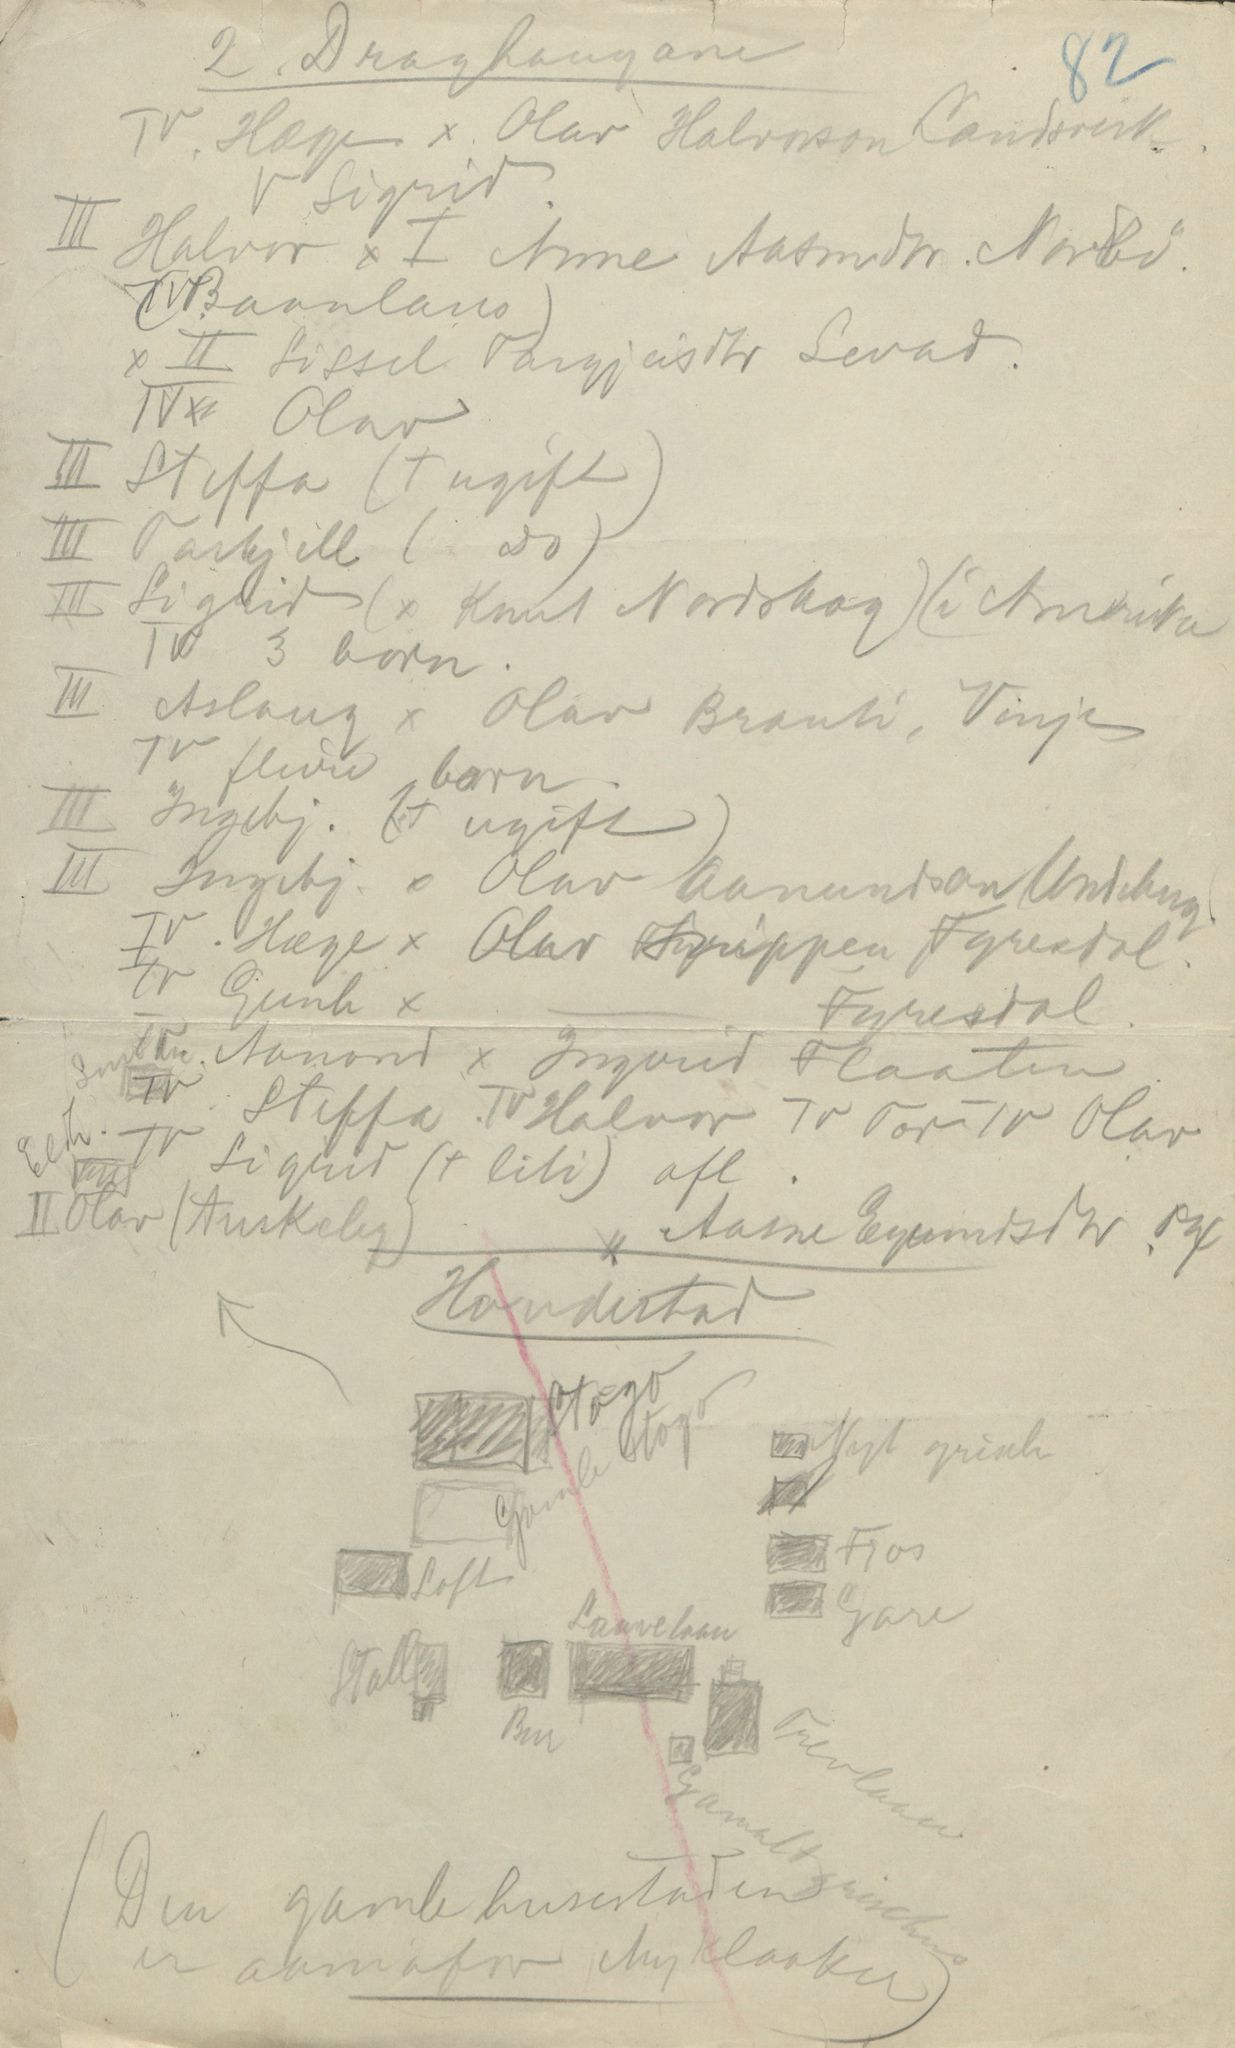 2. Draghaugane
82
IV. Hæge x Olav Halvorson Landsverk.
V Sigrid.
III Halvor x I Anne Aasmdtr. Nordbö.
(IV Baanlaus)
x II Sissel Torgjeisdtr Sevad.
IV Olav
III Steffa (+ ugift)
III Torkjell ( Do)
III Sigrid (x Knut Nordskog) (i Amerika
IV 3 born.
III Aslaug x Olav Brauti, Vinje
IV fleire born.
III Ingebj. (+ ugift)
III Ingebj. x Olav Aanundson
IV. Hæge x Olav Fyresdal.
IV Gunh x Fyresdal.
IV. Aanond x Ingerid Flaaten
IV Steffa. IV Halvor IV Tor IV Olav
IV Sigrid (+ liti) ofl.
II Olav x Aasne Eyvindsdtr.
Hondestad
Stogo
Gamle Stogo
Nyt griseh
Loft
Fjos
Gare
Stall
Bur
Laavelaan
Trevlaan
Gamalt grisehus
(Den gamle husestaden
er aamafor Myklaaker)